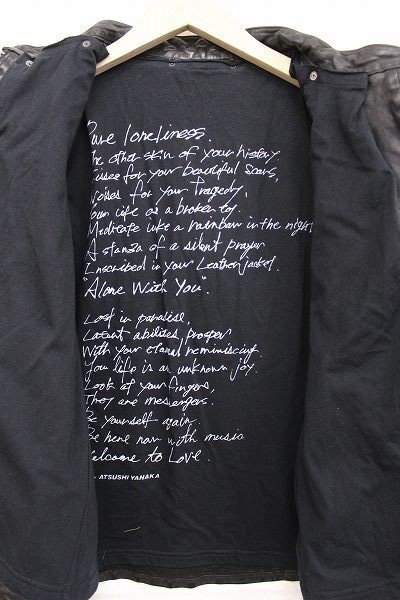 Pure loneliness.
The other skin of your history
Kisses for your beautiful scars,
Noises for your tragedy,
Your life as a broken toy.
Meditate like a rainbow in the night
A stanza of a silent prayer
Inscribed in your Leather jacket.
"Alone With You".
Lost in paradise,
Latent abilities, prosper
With your eternal reminiscing.
You life is an unknown joy.
Look at your fingers
They are messengers.
Be yourself again.
Be here now with music
Welcome to Love.
ATSUSHI YANAKA